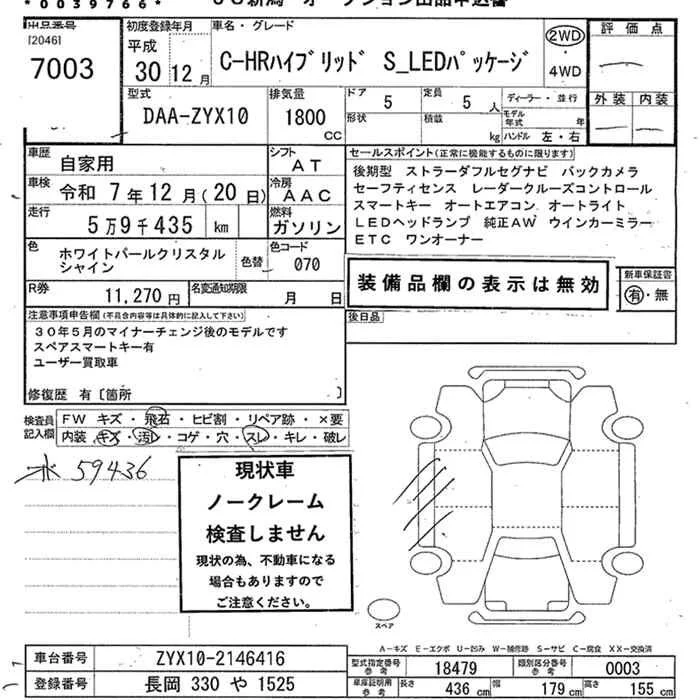 *0039766*
出品番号
[2046]
7003
初度登録年月
平成
30年12月
車名・グレード
C-HRハイブリッド S_LEDパッケージ
2WD
・
4WD
評価点
型式
DAA-ZYX10
排気量
1800
CC
ドア 5
定員 5 人
形状
積載 kg
ディーラー・並行
モデル年式 年
ハンドル 左・右
外装 内装
車歴
自家用
シフト
AT
車検 令和 7年12月(20日)
冷房
AAC
走行 5万9千435 km
燃料
ガソリン
色
ホワイトパールクリスタル
シャイン
色替
色コード
070
R券 11,270円
名変通知期限
月 日
セールスポイント(正常に機能するものに限ります)
後期型 ストラーダフルセグナビ バックカメラ
セーフティセンス レーダークルーズコントロール
スマートキー オートエアコン オートライト
LEDヘッドランプ 純正AW ウインカーミラー
ETC ワンオーナー
装備品欄の表示は無効
新車保証書
有・無
後日品
注意事項申告欄(不具合内容等は具体的に記入して下さい)
30年5月のマイナーチェンジ後のモデルです
スペアスマートキー有
ユーザー買取車
修復歴 有〔箇所 〕
検査員
記入欄
FW キズ・飛石・ヒビ割・リペア跡・×要
内装・キズ・汚レ・コゲ・穴・スレ・キレ・破レ
59436
現状車
ノークレーム
検査しません
現状の為、不動車になる
場合もありますので
ご注意ください。
スペア
A-キズ E-エクボ U-凹み W-補修跡 S-サビ C-腐食 XX-交換済
車台番号 ZYX10-2146416
登録番号 長岡 330 や 1525
型式指定番号
参考
18479
類別区分番号
参考
0003
車庫証明用
参考
長さ 436 cm
幅 179 cm
高さ 155 cm